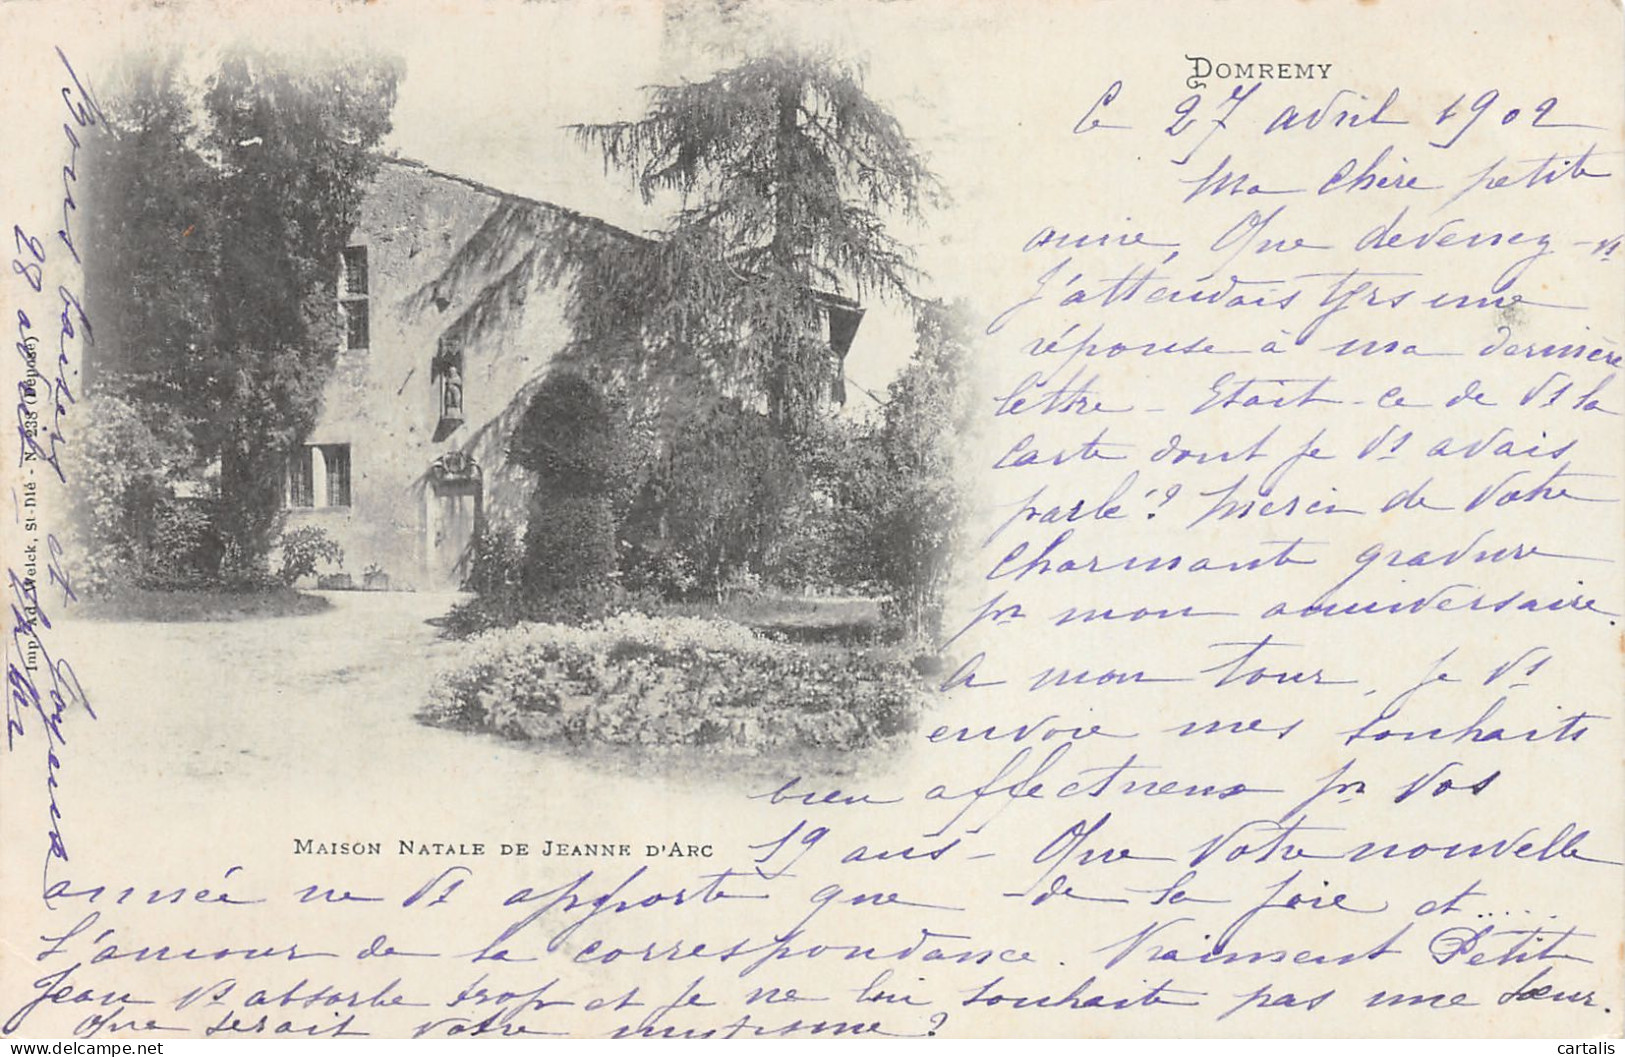 DOMREMY
le 27 avril 1902
Ma chère petite
amie, Que devenez-vs
J'attendais tjrs une
réponse à ma dernière
lettre - Etait-ce de Vs la
carte dont je Vs avais
parlé? Merci de Votre
charmante gravure
pr mon anniversaire.
A mon tour, je Vs
envoie mes souhaits
bien affectueux pr Vos
MAISON NATALE DE JEANNE D'ARC
19 ans - Que Votre nouvelle
année ne Vs apporte que de la joie et .....
L'amour de la correspondance. Vraiment Petit
Jean Vs absorbe trop et je ne lui souhaite pas une sœur.
Que serait votre mutisme?
Bons baisers et
28 avril
Imp. Ad. Welck, St-Dié - No 238 (Déposé)
cartalis